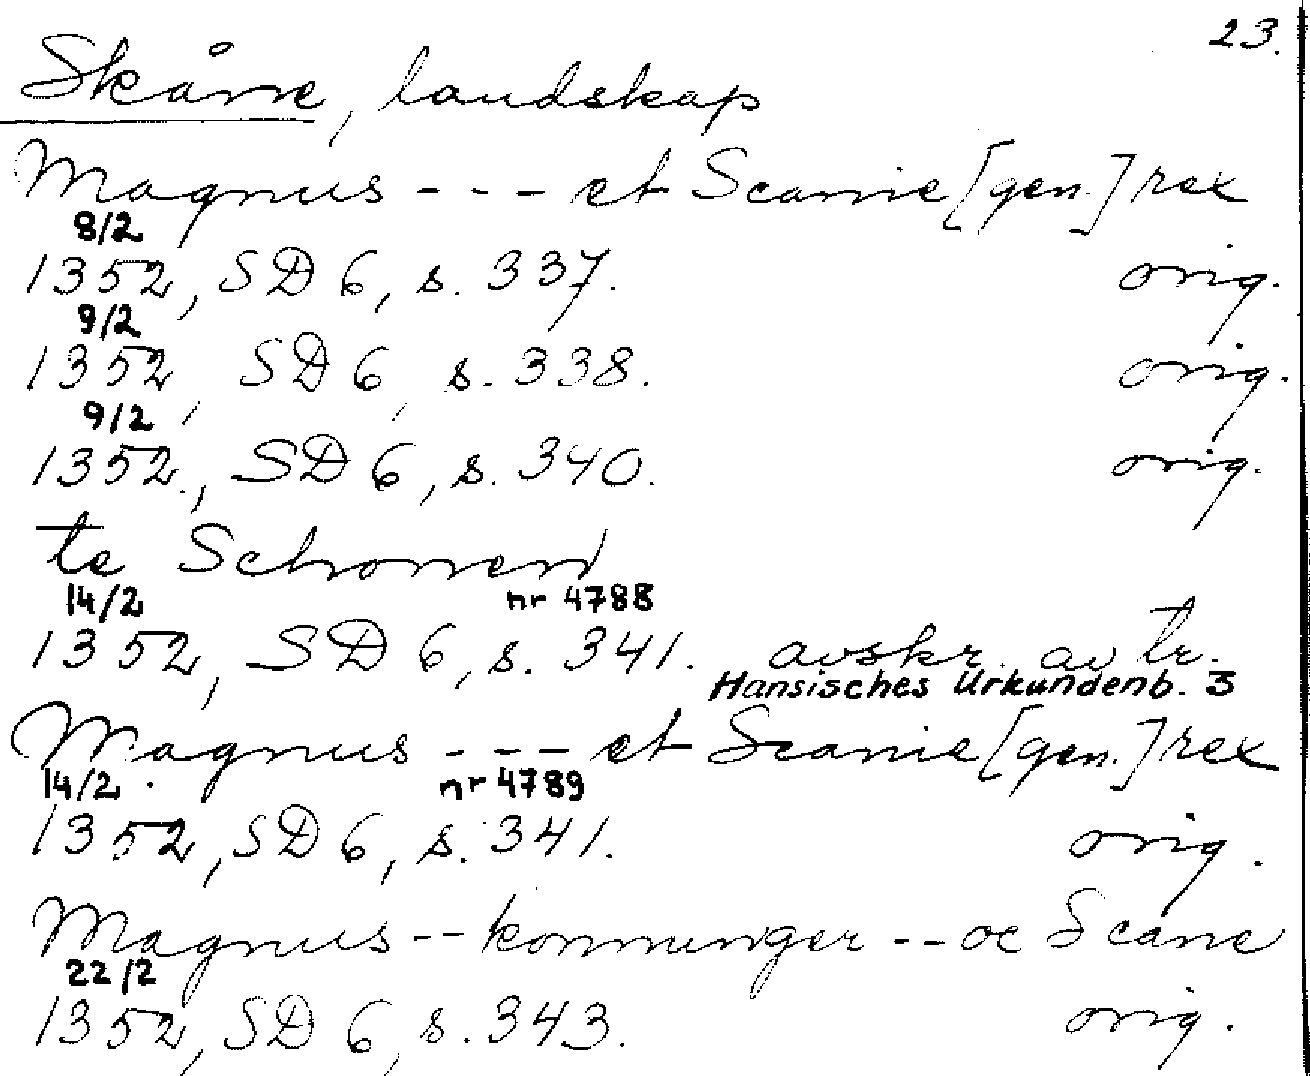 23.
Skåne, landskap
Magnus - - - et Scanie [gen.] rex
8/2
1352, SD 6, s. 337. orig.
9/2
1352, SD 6, s. 338. orig.
9/2
1352, SD 6, s. 340. orig.
te Schonen
14/2 nr 4788
1352, SD 6, s. 341. avskr. av tr.
Hansisches Urkundenb. 3
Magnus - - - et Scanie [gen.] rex
14/2 nr 4789
1352, SD 6, s. 341. orig.
Magnus -- konnunger -- oc Scane
22/2
1352, SD 6, s. 343. orig.